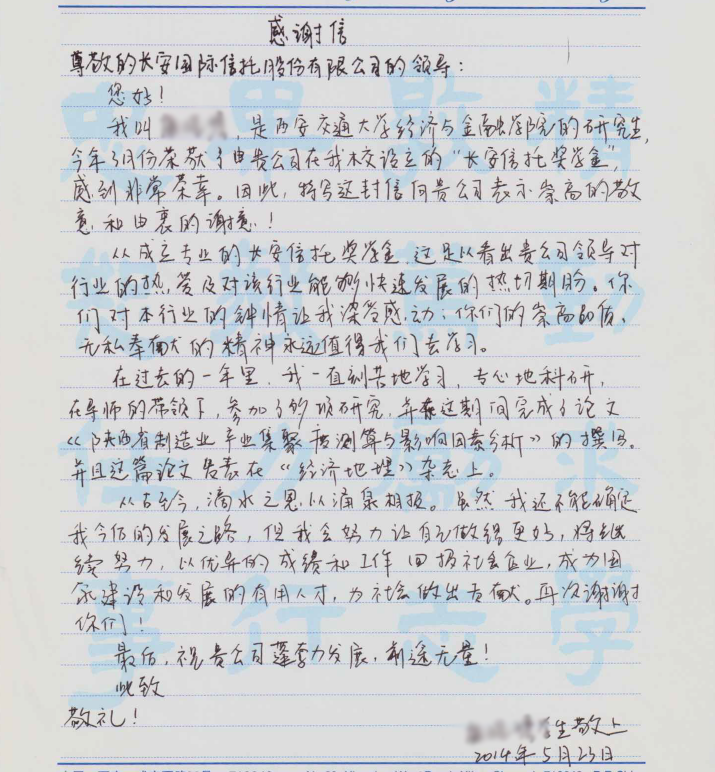 感谢信
尊敬的长安国际信托股份有限公司的领导：
您好！
我叫 ，是西安交通大学经济与金融学院的研究生，
今年3月份荣获了由贵公司在我校设立的“长安信托奖学金”，
感到非常荣幸。因此，特写这封信向贵公司表示崇高的敬
意和由衷的谢意！
从成立专业的长安信托奖学金，这足以看出贵公司领导对
行业的热爱及对该行业能够快速发展的热切期盼。你
们对本行业的钟情让我深受感动；你们的崇高品质、
无私奉献的精神永远值得我们去学习。
在过去的一年里，我一直刻苦地学习，专心地科研，
在导师的带领下，参加了多项研究，并在这期间完成了论文
《陕西省制造业产业集聚度测算与影响因素分析》的撰写。
并且这篇论文发表在《经济地理》杂志上。
从古至今，滴水之恩，以涌泉相报。虽然我还不能确定
我今后的发展之路，但我会努力让自己做得更好，将继
续努力，以优异的成绩和工作回报社会企业，成为国
家建设和发展的有用人才，为社会做出贡献。再次谢谢
你们！
最后，祝贵公司蓬勃发展，前途无量！
此致
敬礼！
学生敬上
2014年5月23日
精 勤 求 学
敦 笃 励 志
果 毅 力 行
忠 恕 任 事